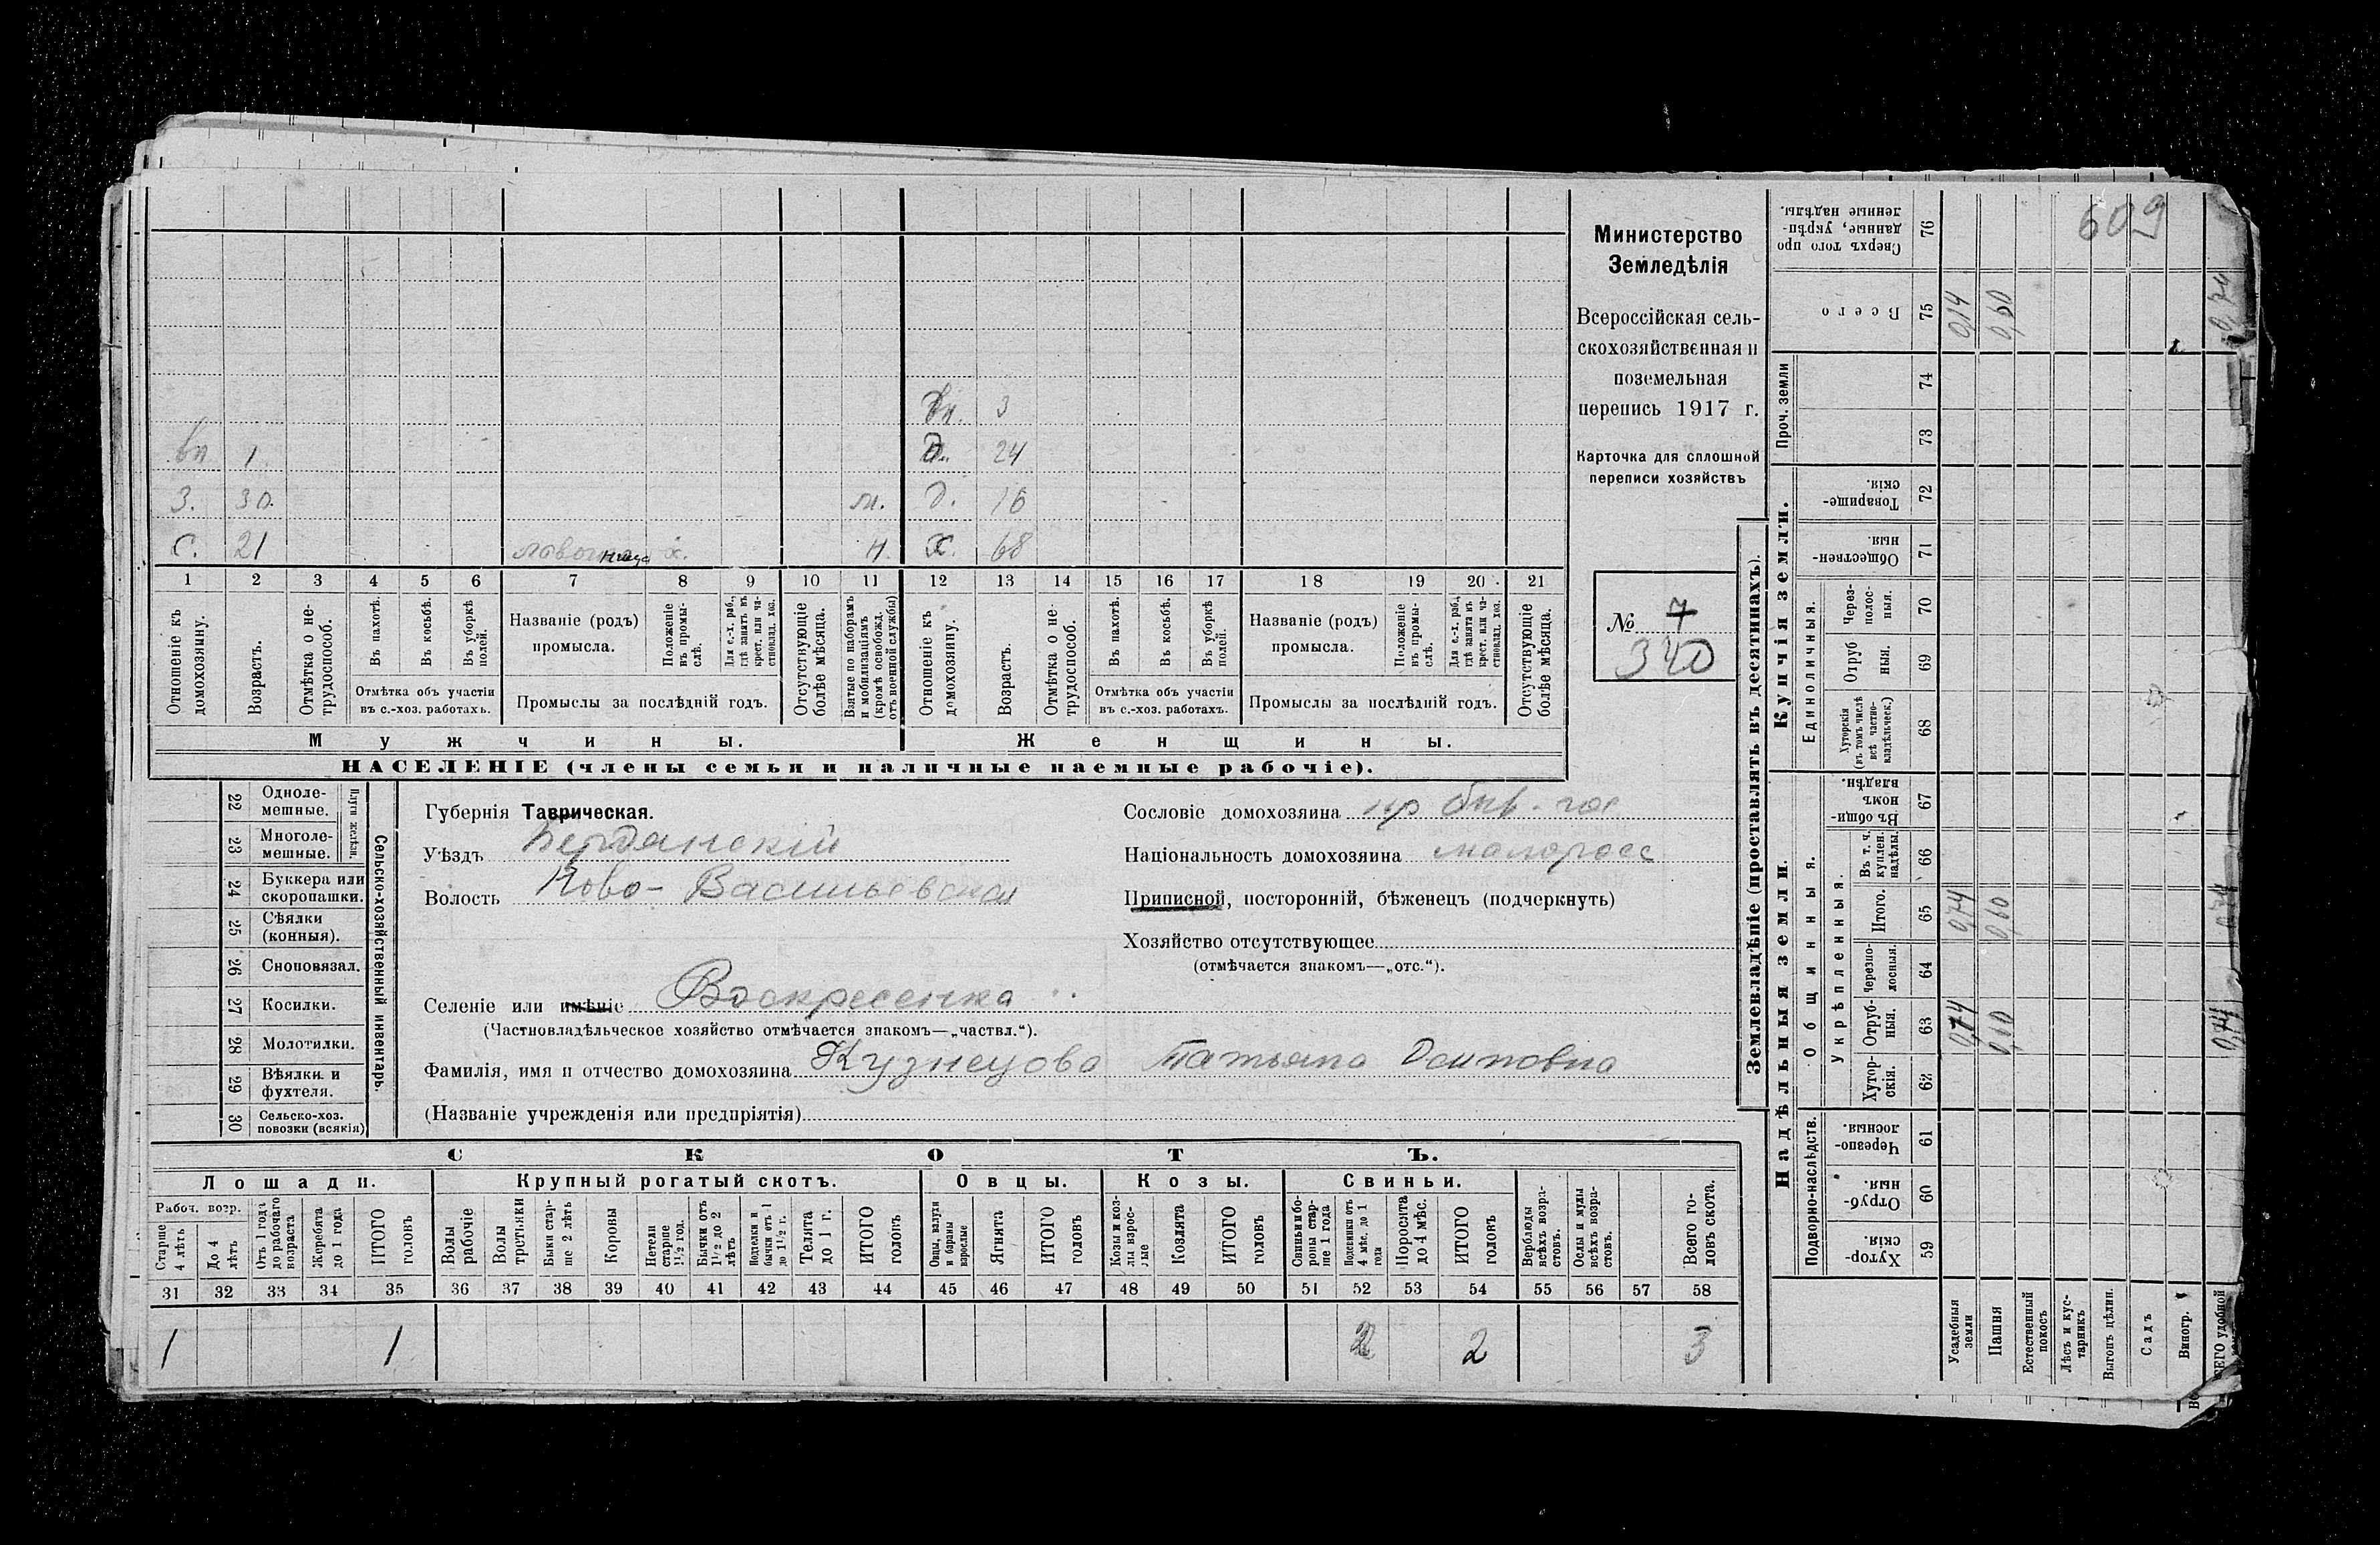 609
Министерство
Земледѣлія
Всероссійская сель-
скохозяйственная и
поземельная
перепись 1917 г.
Карточка для сплошной
переписи хозяйствъ
№ 7
340
вн. 3
вн 1 д. 24
З. 30. м. д. 16
С. 21 х. н. Х. 68
1 2 3 4 5 6 7 8 9 10 11 12 13 14 15 16 17 18 19 20 21
Отношеніе къ домохозяину.
Возрастъ.
Отмѣтка о не-трудоспособ.
Въ пахотѣ.
Въ косьбѣ.
Въ уборкѣ полей.
Отмѣтка объ участіи
въ с.-хоз. работахъ.
Названіе (родъ)
промысла.
Положеніе въ промы-слѣ.
Для с.-х. раб., гдѣ занятъ въ крест. или ча-стновлад. хоз.
Промыслы за послѣдній годъ.
Отсутствующіе болѣе мѣсяца.
Взятые по наборамъ и мобилизаціямъ (кромѣ освобожд. отъ военной службы)
Отношеніе къ домохозяину.
Возрастъ.
Отмѣтка о не-трудоспособ.
Въ пахотѣ.
Въ косьбѣ.
Въ уборкѣ полей.
Отмѣтка объ участіи
въ с.-хоз. работахъ.
Названіе (родъ)
промысла.
Положеніе въ промы-слѣ.
Для с.-х. раб., гдѣ занята въ крест. или ча-стновлад. хоз.
Промыслы за послѣдній годъ.
Отсутствующіе болѣе мѣсяца.
Мужчины. Женщины.
НАСЕЛЕНІЕ (члены семьи и наличные наемные рабочіе).
Сельско-хозяйственный инвентарь.
Плуги желѣзн.
22 Одноле-мешные.
23 Многоле-мешные.
24 Буккера или скоропашки.
25 Сѣялки (конныя).
26 Сноповязал.
27 Косилки.
28 Молотилки.
29 Вѣялки и фухтеля.
30 Сельско-хоз. повозки (всякія)
Губернія Таврическая.
Уѣздъ Бердянскій
Волость Ново-Васильевская
Селеніе или имѣніе Воскресенка
(Частновладѣльческое хозяйство отмѣчается знакомъ—„частвл.“).
Фамилія, имя и отчество домохозяина Кузнецова Татьяна Осиповна
(Названіе учрежденія или предпріятія)
Сословіе домохозяина кр
Національность домохозяина малоросс
Приписной, посторонній, бѣженецъ (подчеркнуть)
Хозяйство отсутствующее
(отмѣчается знакомъ—„отс.“).
СКОТЪ.
Лошади. Крупный рогатый скотъ. Овцы. Козы. Свиньи.
Рабоч. возр.
Старше 4 лѣтъ
До 4 лѣтъ
Отъ 1 года до рабочаго возраста
Жеребята до 1 года
ИТОГО головъ
Волы рабочіе
Волы третьяки
Быки стар-ше 2 лѣтъ
Коровы
Нетели старше 1 1/2 год.
Бычки отъ 1 1/2 до 2 лѣтъ
Подтелки и бычки отъ 1 до 1 1/2 г.
Телята до 1 г.
ИТОГО головъ
Овцы, валухи и бараны взрослые
Ягнята
ИТОГО головъ
Козы и коз-лы взрос-лые
Козлята
ИТОГО головъ
Свиньи и бо-ровы стар-ше 1 года
Подсвинки отъ 4 мѣс. до 1 года
Поросята до 4 мѣс.
ИТОГО головъ
Верблюды всѣхъ возра-стовъ.
Ослы и мулы всѣхъ возра-стовъ.
Всего го-ловъ скота.
31 32 33 34 35 36 37 38 39 40 41 42 43 44 45 46 47 48 49 50 51 52 53 54 55 56 57 58
1 1 2 2 3
Землевладѣніе (проставлять въ десятинахъ).
Надѣльныя земли. Купчія земли. Проч. земли
Подворно-наслѣдств.
Общинныя.
Укрѣпленныя.
Единоличныя.
59 Хутор-скія.
60 Отруб-ныя.
61 Черезпо-лосныя.
62 Хутор-скія.
63 Отруб-ныя.
64 Черезпо-лосныя.
65 Итого.
66 Въ т. ч. куплен. надѣлы.
67 Въ общин-номъ владѣн.
68 Хуторскія (въ томъ числѣ всѣ частно-владѣльческ.)
69 Отруб ныя.
70 Через-полос-ныя.
71 Обществен-ныя.
72 Товарище-скія.
73
74
75 Всего
76 Сверхъ того про данные, укрѣп-ленные надѣлы.
Усадебныя земли 0,14
Пашня 0,60 0,60
Естественный покосъ
Лѣсъ и кус-тарникъ
Выгонъ цѣлин.
Садъ
Виногр.
удобной 0,74